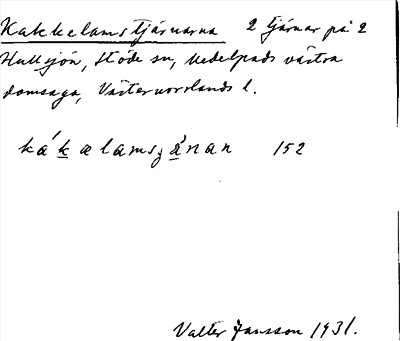 Kakkelamstjärnarna 2 tjärnar på 2
Hullsjön, Stöde sn, Medelpads västra
domsaga, Västernorrlands l.
kákalamsʒánan 152
Valter Jansson 1931.